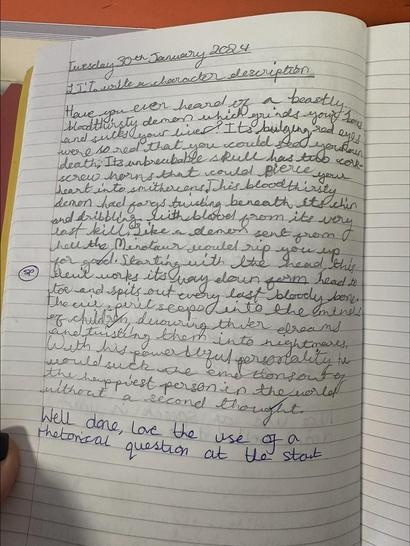 Tuesday 30th January 2024
LI: To write a character description
Have you ever heard of a beastly,
bloodthirsty demon which grinds your bones
and sucks your lives? Its bulging red eyes
were so red that you could see your own
death. Its unbreakable skull has two cork-
screw horns that could pierce your
heart into smithereens. This bloodthirsty
demon had fangs twisting beneath its chin
and dribbling with blood from its very
last kill. Like a demon sent from
hell the Minotaur would rip you up
for good. Starting with the head, this
works its way down form head to
sp
toe and spits out every last bloody bone.
The evil spirit into the minds
of children duvouring thier dreams
and twisting them into nightmares.
With his personality he
would suck the emotions out of
the happiest person in the world
without a second thought.
Well done, love the use of a
rhetorical question at the start